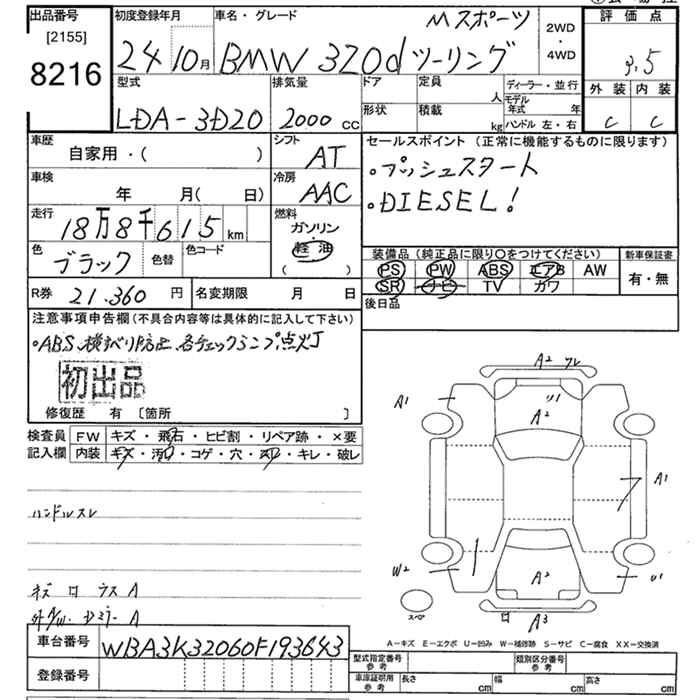 出品番号 初度登録年月 車名・グレード Mスポーツ 2WD・4WD 評価点
[2155]
8216 24 10月 BMW 320d ツーリング 3.5
型式 排気量 ドア 定員 人 ディーラー・並行 外装 内装
形状 積載 kg モデル年式 年
LDA-3D20 2000 CC ハンドル 左・右 C C
車歴 自家用・( ) シフト AT セールスポイント (正常に機能するものに限ります)
・プッシュスタート
車検 年 月( 日) 冷房 AAC
・DIESEL!
走行 18万8千615km 燃料 ガソリン・軽油 ( )
装備品 (純正品に限り○をつけてください) 新車保証書
色 ブラック 色替 色コード PS PW ABS エアB AW 有・無
SR ナビ TV カワ
R券 21.360 円 名変期限 月 日 後日品
注意事項申告欄 (不具合内容等は具体的に記入して下さい)
・ABS、横すべり防止、各チェックランプ点灯
初出品
修復歴 有 〔箇所 〕
検査員 FW キズ・飛石・ヒビ割・リペア跡・×要
記入欄 内装 キズ・汚れ・コゲ・穴・スレ・キレ・破レ
A2 フレ
A1 U1 A2
A1
ハンドルスレ
W2 A2 U1
スペア
ロ A3
A
A
A-キズ E-エクボ U-凹み W-補修跡 S-サビ C-腐食 XX-交換済
車台番号 WBA3K32060F193643
型式指定番号 参考 類別区分番号 参考
登録番号 車庫証明用 参考 長さ cm 幅 cm 高さ cm